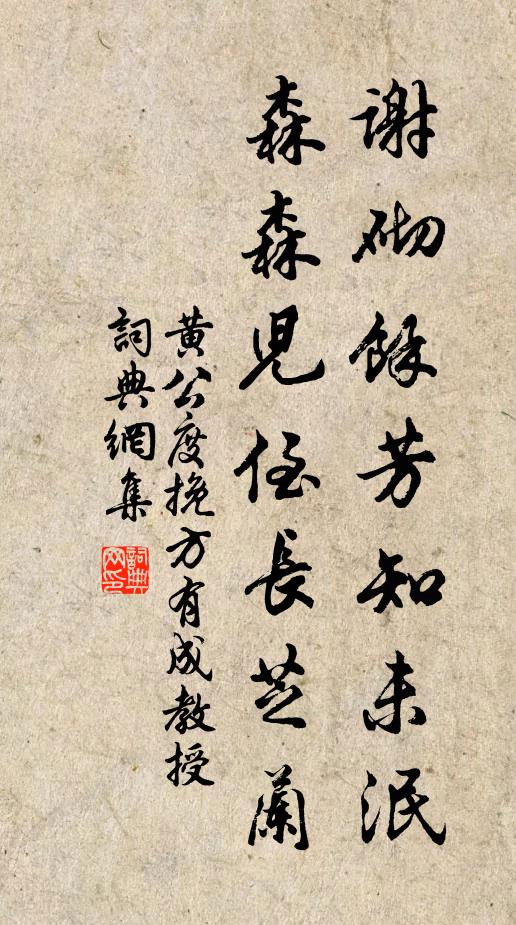 謝砌餘芳知未泯
森森児侄長芝蘭
黄公度挽方有成教授
詞典網集
詞典网印